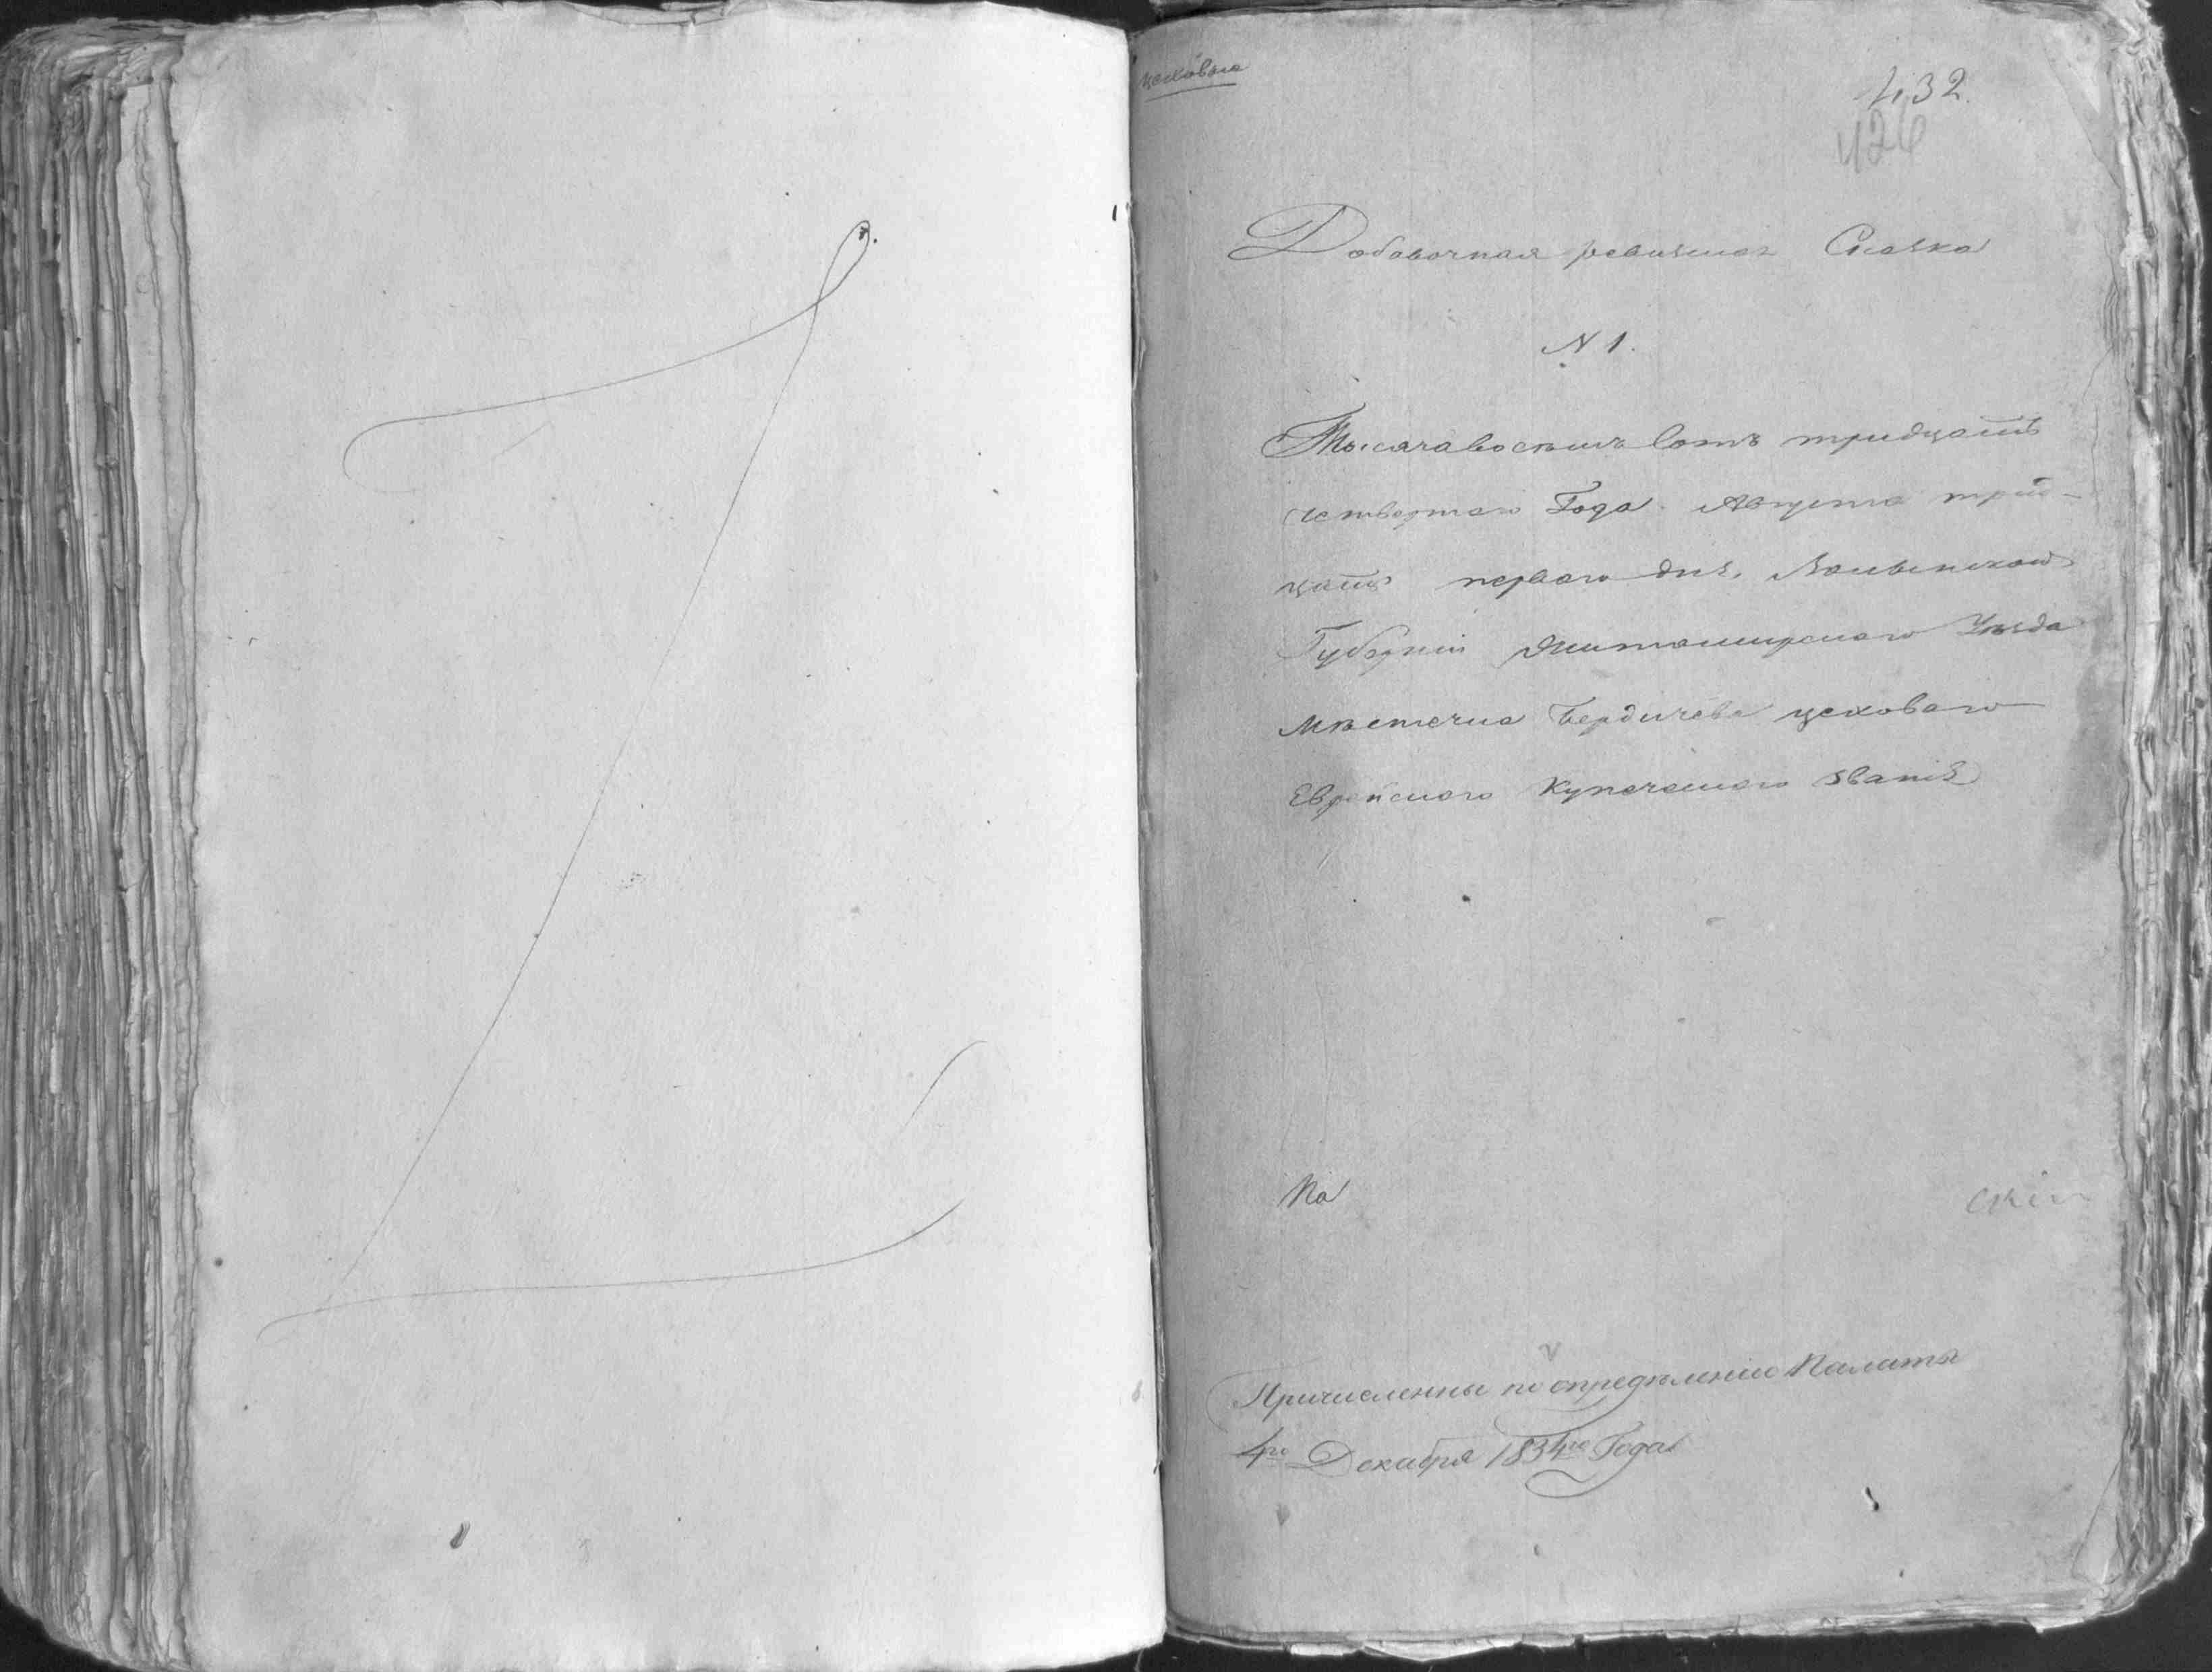 цеховаго
432
426
Добавочная ревизская Сказка
N 1.
Тысяча восемь сотъ тридцать
четвертаго Года Августа трид-
цать перваго дня, Волынской
Губернiи Житомирского Уѣзда
мѣстечка Бердичева цеховаго
Еврейскаго Купеческаго званiя
На
Причисленные по опредѣленiю Палаты
4го Декабря 1834го Года